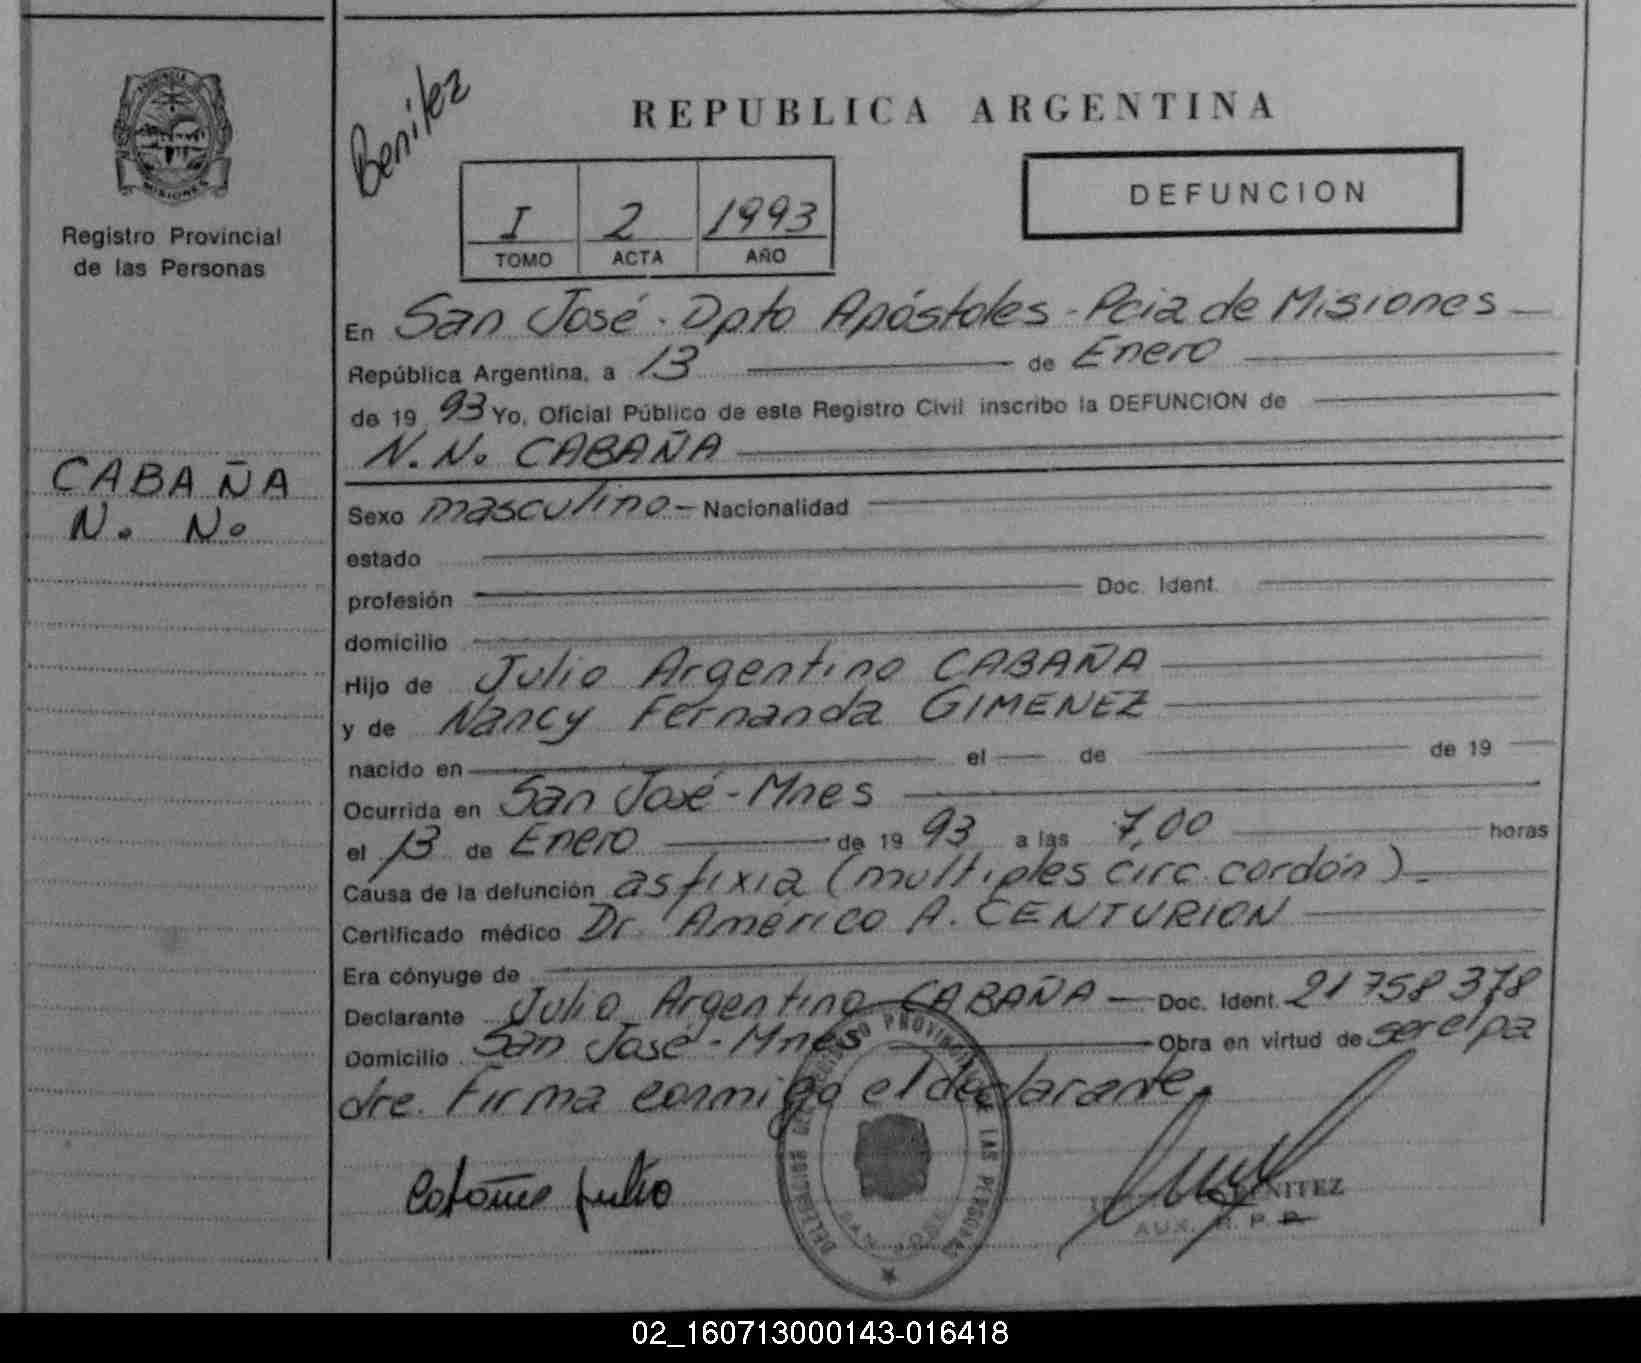 PROVINCIA
MISIONES
Registro Provincial
de las Personas
CABAÑA
N. N.
Benitez
REPUBLICA ARGENTINA
DEFUNCION
I 2 1993
TOMO ACTA AÑO
En San José - Dpto Apóstoles - Pcia de Misiones
República Argentina, a 13 de Enero
de 19 93 Yo, Oficial Público de este Registro Civil inscribo la DEFUNCION de
N.N. CABAÑA
Sexo masculino - Nacionalidad
estado
profesión Doc. Ident.
domicilio
Hijo de Julio Argentino CABAÑA
y de Nancy Fernanda GIMENEZ
nacido en el de de 19
Ocurrida en San José - Mnes
el 13 de Enero de 19 93 a las 7,00 horas
Causa de la defunción asfixia (multiples circ. cordón).
Certificado médico Dr. Américo A. CENTURION
Era cónyuge de
Declarante Julio Argentino CABAÑA - Doc. Ident. 21758378
Domicilio San José - Mnes Obra en virtud de ser el pa
dre. Firma conmigo el declarante.
DELEGACION REGISTRO PROVINCIAL DE LAS PERSONAS
SAN JOSE
Julio
BENITEZ
AUX. R. P. P.
02_160713000143-016418